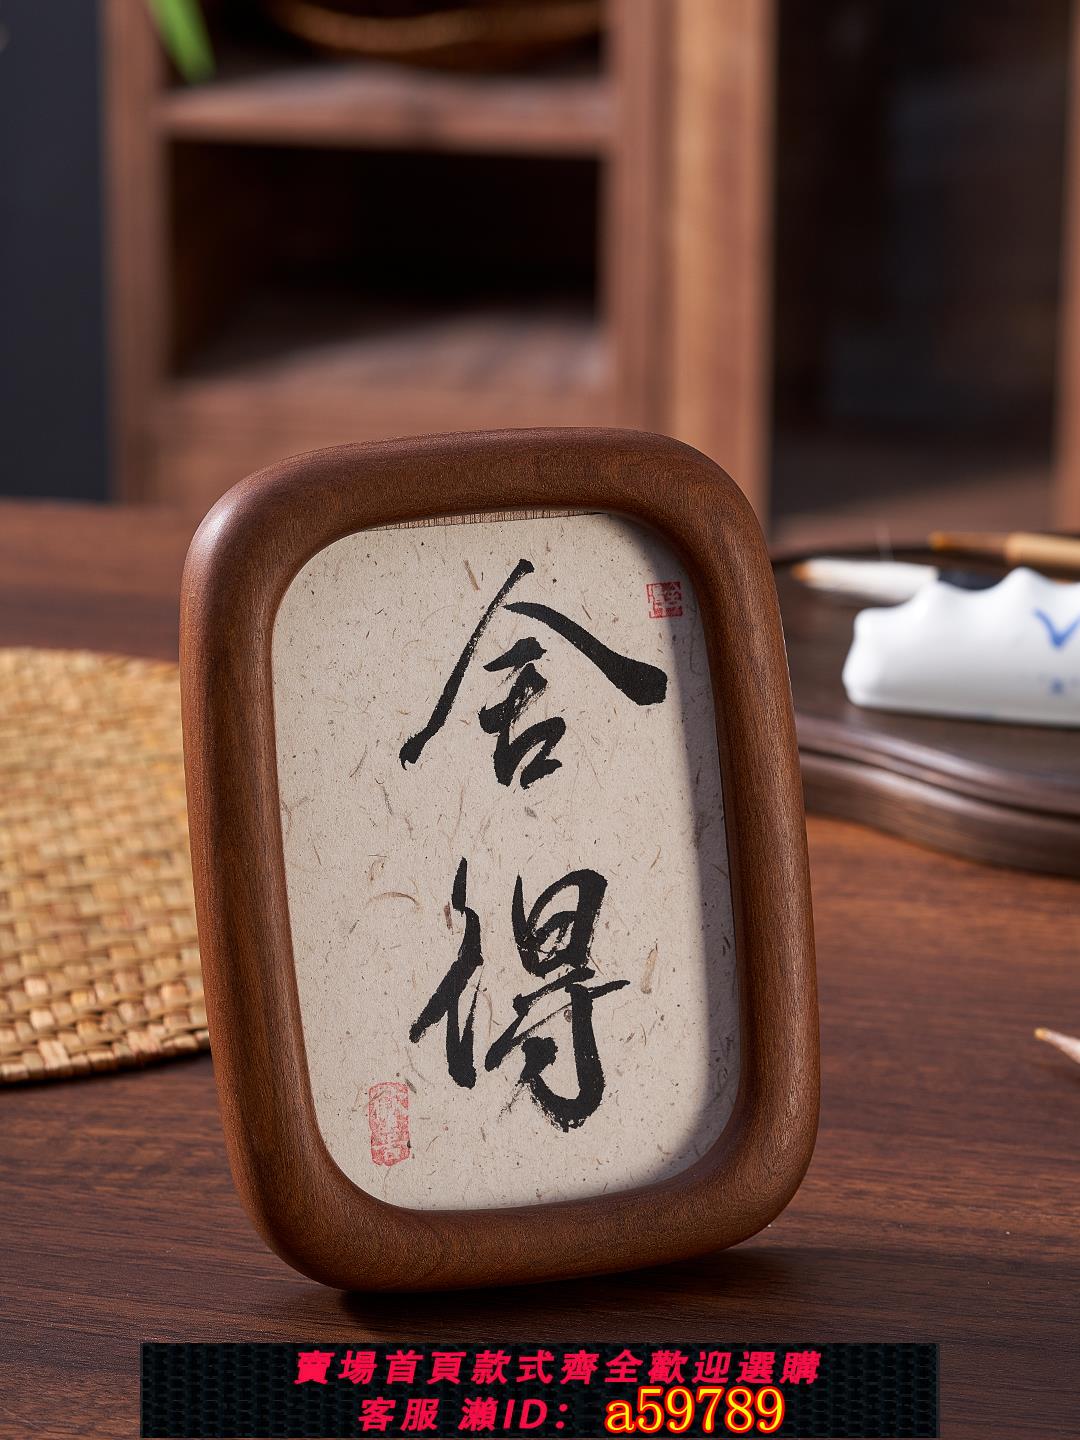 舍
得
賣場首頁款式齊全歡迎選購
客服 瀨ID：a59789